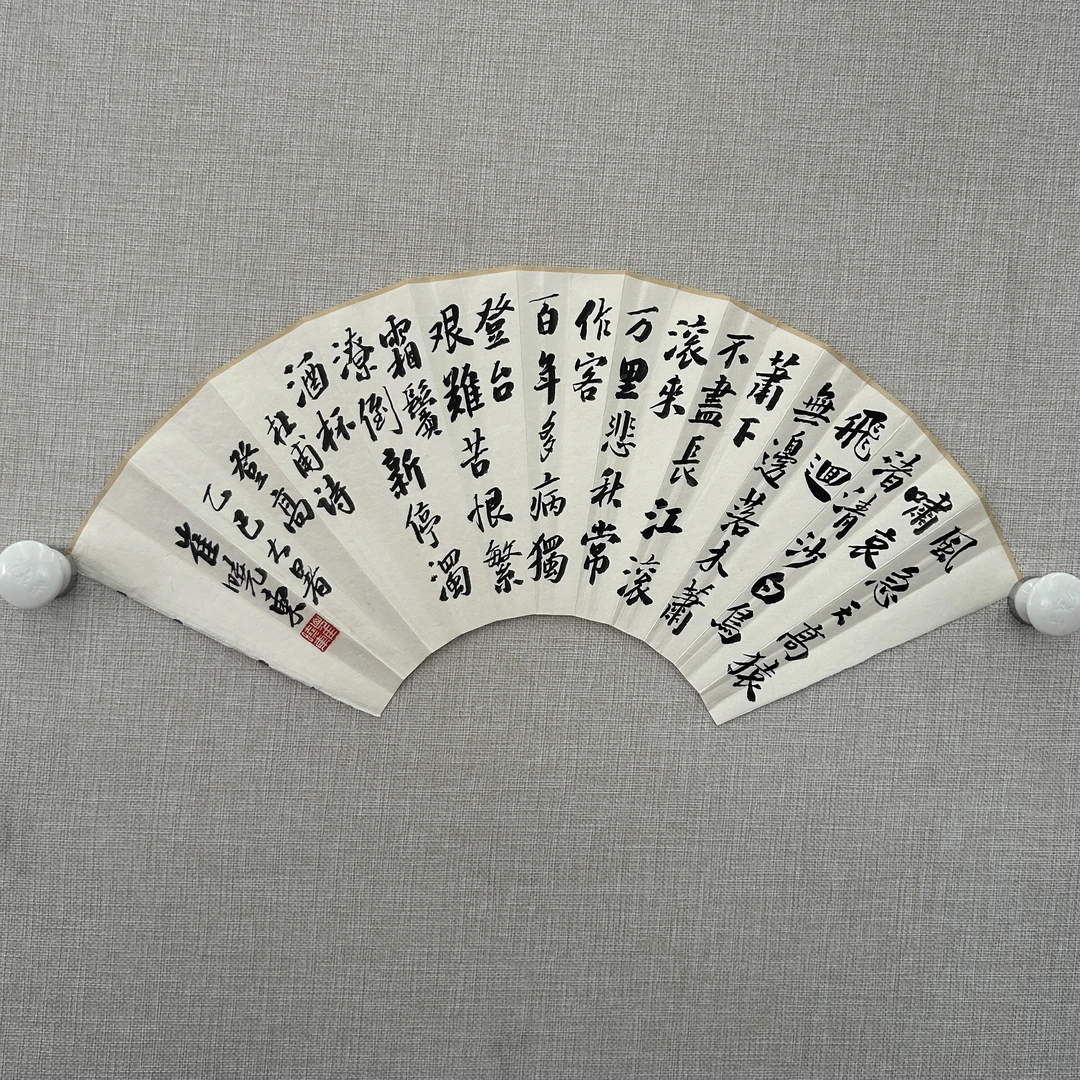 風急天高猿
嘯哀
渚清沙白鳥
飛迴
無邊落木蕭
蕭下
不盡長江滾
滾來
万里悲秋常
作客
百年多病獨
登台
艱難苦恨繁
霜鬢
潦倒新停濁
酒杯
杜甫詩
登高
乙巳大暑
崔曉